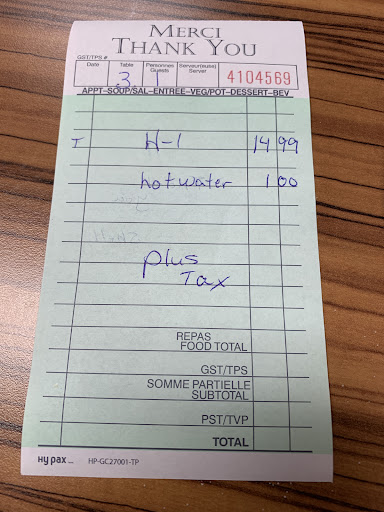 MERCI
THANK YOU
GST/TPS #
Date Table Personnes Guests Serveur(euse) Server
3 1 4104569
APPT-SOUP/SAL-ENTREE-VEG/POT-DESSERT-BEV
I H-1 14 99
hot water 1 00
plus
Tax
REPAS
FOOD TOTAL
GST/TPS
SOMME PARTIELLE
SUBTOTAL
PST/TVP
TOTAL
Hy pax HP-GC27001-TP